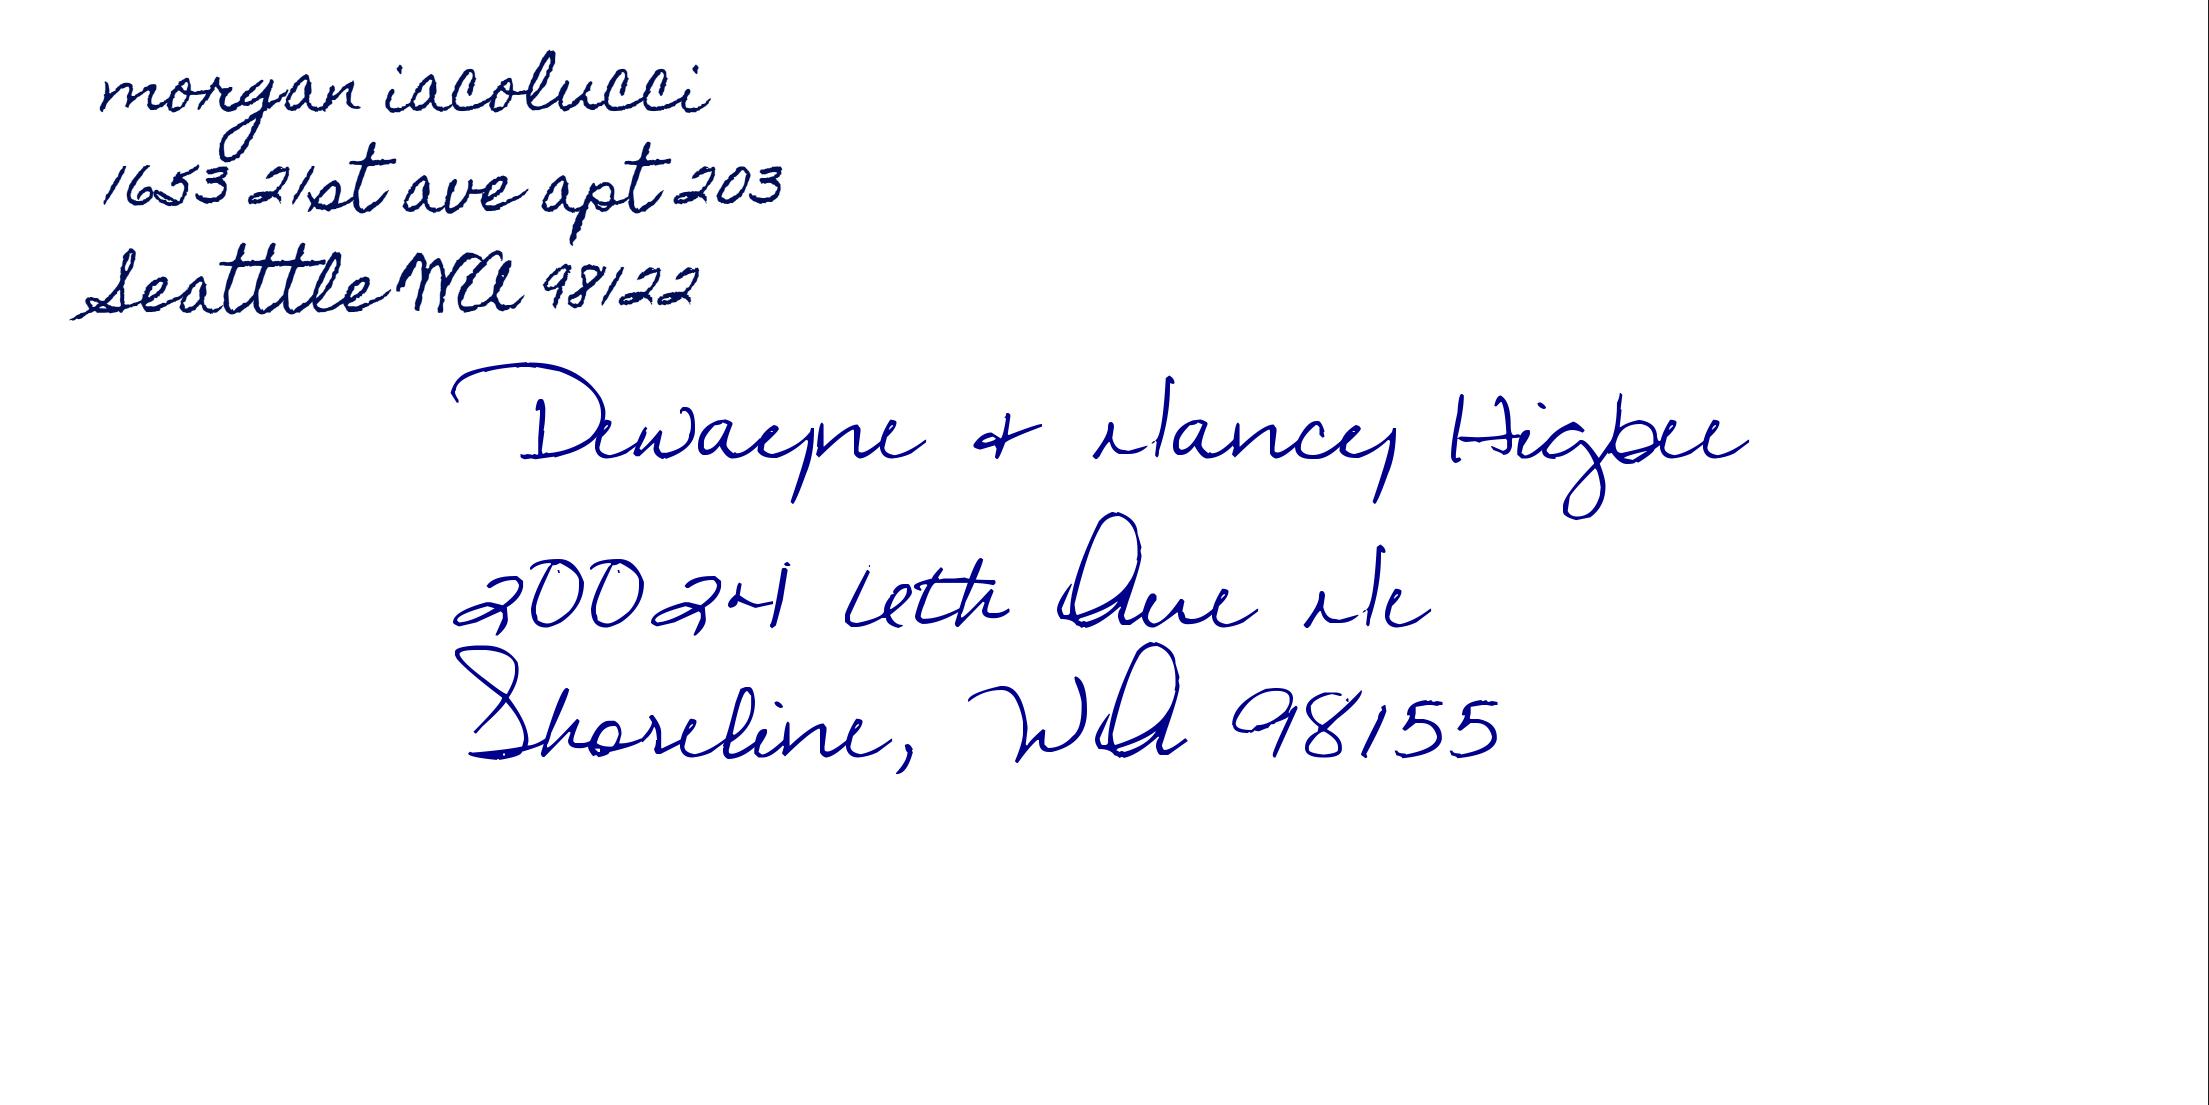 morgan iacolucci
1653 21st ave apt 203
Seatttle WA 98122
Dewayne & Nancy Higbee
20024 6th Ave Ne
Shoreline, WA 98155